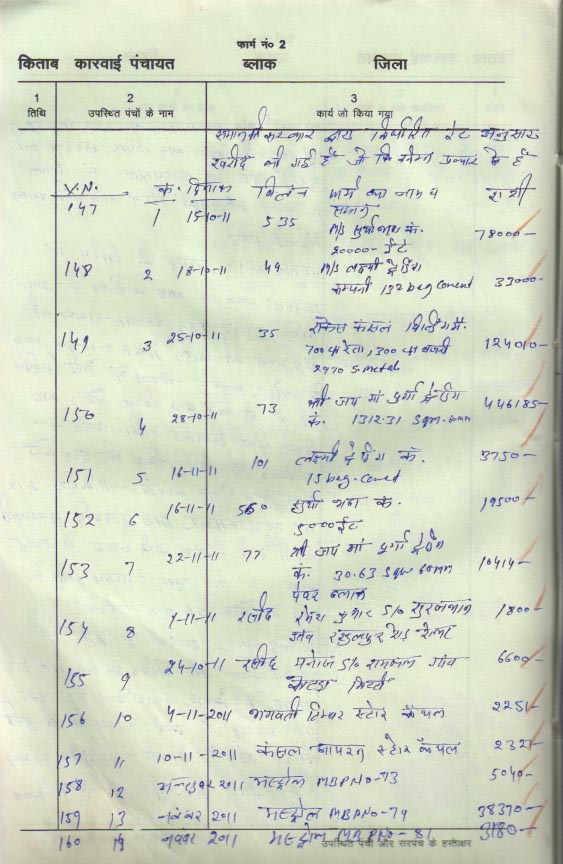 फार्म नं० 2
किताब कारवाई पंचायत ब्लाक जिला
1 2 3
तिथि उपस्थित पंचों के नाम कार्य जो किया गया
द्वारा निर्धारित रेट अनुसार
खरीद की गई है जो कि निम्न प्रकार से है
V.N. क्र. दिनांक बिल नं० फर्म का नाम व राशी
सामान
147 1 15-10-11 535 M/S सुर्या भठ्ठा कं. 78000-
20000- ईंटे
148 2 18-10-11 49 M/S लक्ष्मी ट्रेडिंग
कम्पनी 132 bag cement 33000-
149 3 25-10-11 35 राकेश कंसल बिल्डिंग मै. 124010-
700 फा रेता, 300 फा बजरी
2970 s.metal
150 4 28-10-11 73 श्री जय मां दुर्गा ट्रेडिंग 446185-
कं. 1312.31 Sqm. 60mm
151 5 16-11-11 101 लक्ष्मी ट्रेडिंग कं. 3750-
15 bag-cement
152 6 16-11-11 560 सुर्या भठ्ठा कं. 19500-
5000 ईंट
153 7 22-11-11 77 श्री जय मां दुर्गा ट्रेडिंग 10414-
कं. 30.63 Sqm 60mm
पेवर ब्लाक
154 8 1-11-11 रसीद रमेश कुमार S/o सुरजभान 1800-
गांव
155 9 24-10-11 रसीद मनोज S/o रामफल गांव 6600-
मिट्टी
156 10 4-11-2011 भगवती टिम्बर स्टोर कैथल 2251-
157 11 10-11-2011 कंसल आयरन स्टोर कैथल 2321-
158 12 अक्तूबर 2011 मस्ट्रोल MBPNO-73 5040-
159 13 नवंबर 2011 मस्ट्रोल MBPNO-79 38370-
160 14 नवंबर 2011 मस्ट्रोल MBPNO-81 3180-
उपस्थित पंचों और सरपंच के हस्ताक्षर